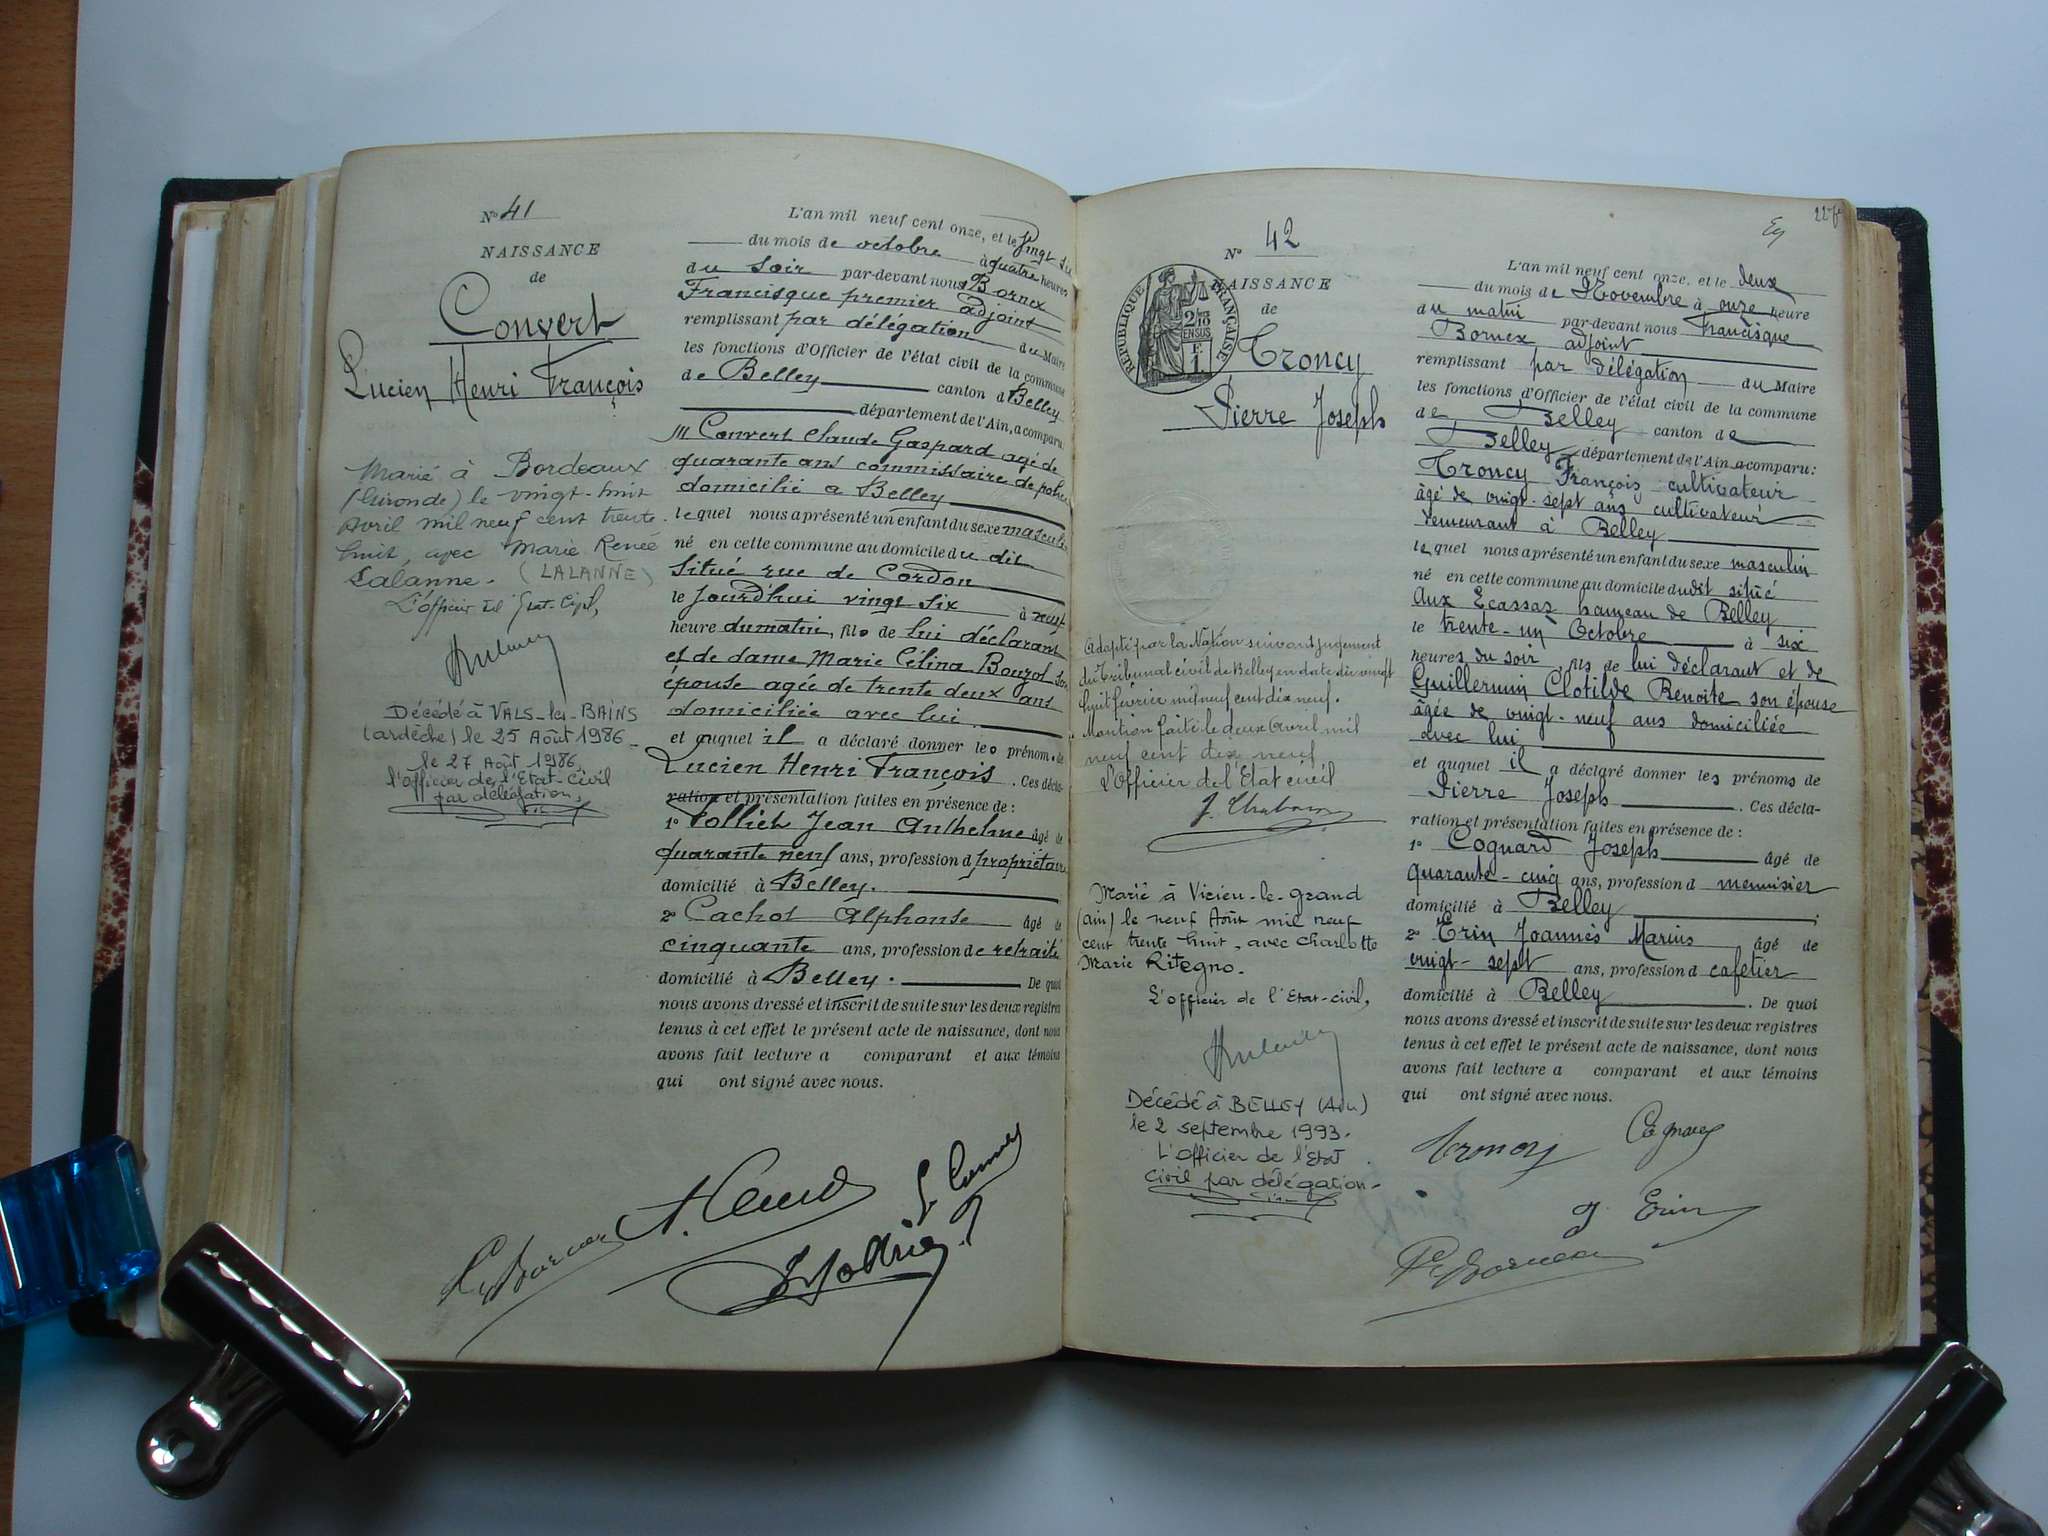 N° 41
NAISSANCE
de
Convert
Lucien Henri François
Marié à Bordeaux
(Gironde) le vingt-huit
Avril mil neuf cent trente-
huit, avec Marie Renée
Lalanne. (LALANNE)
L'officier de l'Etat-Civil,
Décédé à VALS-les-BAINS
(ardèche) le 25 Août 1986
le 27 Août 1986,
l'officier de l'Etat-Civil
par délégation,
L'an mil neuf cent onze, et le Vingt six
du mois de octobre à quatre heures
du soir par-devant nous Bornex
Francisque premier adjoint
remplissant par délégation du Maire
les fonctions d'Officier de l'état civil de la commune
de Belley canton d Belley
département de l'Ain, a comparu:
M Convert Claude Gaspard agé de
quarante ans commissaire de police
domicilié a Belley
le quel nous a présenté un enfant du sexe masculin
né en cette commune au domicile du dit
situé rue de Cordon
le jourd'hui vingt six à neuf
heure du matin, fils de lui déclarant
et de dame Marie Célina Bouzol son
épouse agée de trente deux ans
domiciliée avec lui.
et auquel il a déclaré donner les prénom de
Lucien Henri François. Ces décla-
ration et présentation faites en présence de :
1° Folliet Jean Anthelme âgé de
quarante neuf ans, profession d propriétaire
domicilié à Belley.
2° Cachot Alphonse âgé de
cinquante ans, profession de retraité
domicilié à Belley. De quoi
nous avons dressé et inscrit de suite sur les deux registres
tenus à cet effet le présent acte de naissance, dont nous
avons fait lecture a comparant et aux témoins
qui ont signé avec nous.
227
N° 42
NAISSANCE
de
RÉPUBLIQUE FRANÇAISE
2/10 EN SUS
F. 1
Troncy
Pierre Joseph
Adopté par la Nation suivant jugement
du Tribunal civil de Belley en date du vingt
huit février mil neuf cent dix neuf.
Mention faite le deux Avril mil
neuf cent dix neuf
L'Officier de l'Etat civil
Marié à Vieieu-le-Grand
(ain) le neuf Août mil neuf
cent trente huit, avec Charlotte
Marie Ritegno.
L'officier de l'Etat-civil,
Décédé à BELLEY (Ain)
le 2 septembre 1993.
L'officier de l'Etat
Civil par délégation-
L'an mil neuf cent onze, et le deux
du mois de Novembre à onze heure
du matin par-devant nous Francisque
Bornex adjoint
remplissant par délégation du Maire
les fonctions d'Officier de l'état civil de la commune
de Belley canton de
Belley département de l'Ain, a comparu:
Troncy François cultivateur
âgé de vingt-sept ans cultivateur
demeurant à Belley
le quel nous a présenté un enfant du sexe masculin
né en cette commune au domicile dudit situé
aux Ecassaz hameau de Belley
le trente-un Octobre à six
heures du soir, fils de lui déclarant et de
Guillermin Clotilde Benoite son épouse
âgée de vingt-neuf ans domiciliée
avec lui
et auquel il a déclaré donner les prénoms de
Pierre Joseph. Ces décla-
ration et présentation faites en présence de :
1° Cognard Joseph âgé de
quarante-cinq ans, profession d menuisier
domicilié à Belley
2° Erin Joannès Marius âgé de
vingt-sept ans, profession d cafetier
domicilié à Belley. De quoi
nous avons dressé et inscrit de suite sur les deux registres
tenus à cet effet le présent acte de naissance, dont nous
avons fait lecture a comparant et aux témoins
qui ont signé avec nous.
Troncy
Cognard
J. Erin